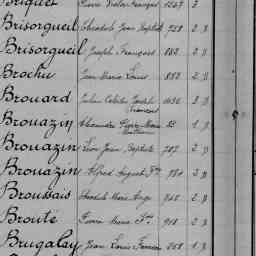 Briguet Pierre Victor François 1247 2
Brisorgueil Théodule Jean Baptiste 728 2 D
Brisorgueil Joseph François 862 2 D
Brochu Jean Marie Louis 853 2 D
Brouard Julien Célestin Joseph François 1096 2 D
Brouazin Alexandre Pierre Marie 23 1 D
Brouazin Léon Jean Baptiste 787 2 D
Brouazin Alfred August Fs 780 2 D
Broussais Théodule Marie Ange 2 D
Brouté Pierre Marie Fs 918 2 D
Brugalay Jean Louis 268 1 D